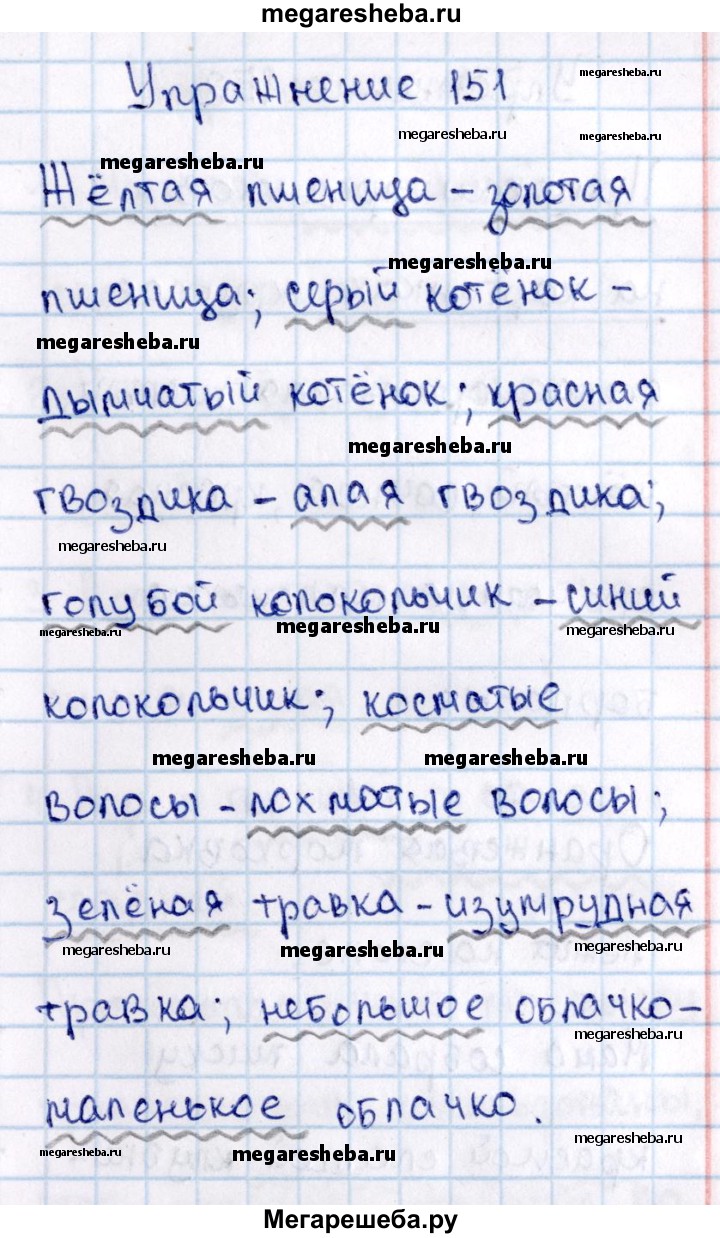 megaresheba.ru
Упражнение 151
megaresheba.ru
megaresheba.ru
megaresheba.ru
megaresheba.ru
Жёлтая пшеница – золотая
megaresheba.ru
пшеница; серый котёнок –
megaresheba.ru
дымчатый котёнок; красная
megaresheba.ru
гвоздика – алая гвоздика;
megaresheba.ru
голубой колокольчик – синий
megaresheba.ru
megaresheba.ru
megaresheba.ru
колокольчик; косматые
megaresheba.ru
megaresheba.ru
волосы – лохматые волосы;
зелёная травка – изумрудная
megaresheba.ru
megaresheba.ru
megaresheba.ru
травка; небольшое облачко –
megaresheba.ru
маленькое облачко.
megaresheba.ru
megaresheba.ru
megaresheba.ru
Мегарешеба.ру